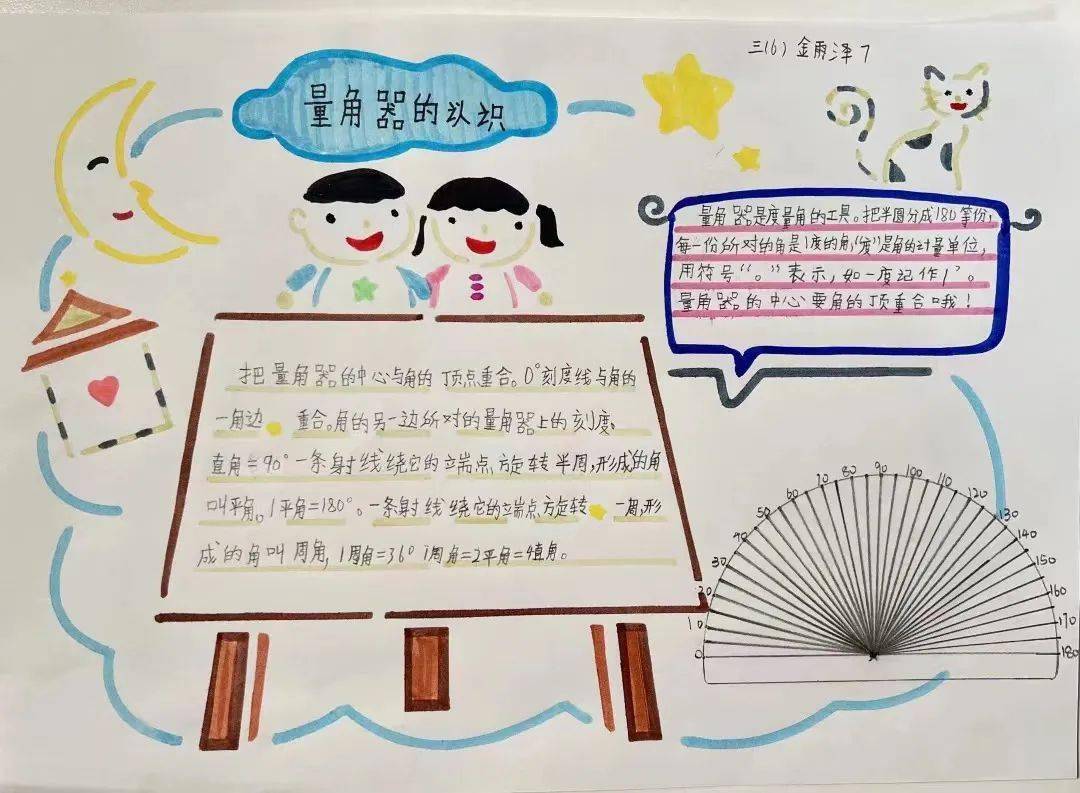 三(6) 金雨泽 7
量角器的认识
量角器是度量角的工具。把半圆分成180等份,
每一份所对的角是1度的角,“度”是角的计量单位,
用符号“。”表示,如一度记作1°。
量角器的中心要角的顶重合哦!
把量角器的中心与角的顶点重合。0°刻度线与角的
一角边 重合。角的另一边所对的量角器上的刻度。
直角=90°一条射线绕它的端点方旋转半周,形成的角
叫平角。1平角=180°。一条射线绕它的端点方旋转 一周,形
成的角叫周角,1周角=36° 1周角=2平角=4直角。
0 10 20 30 40 50 60 70 80 90 100 110 120 130 140 150 160 170 180